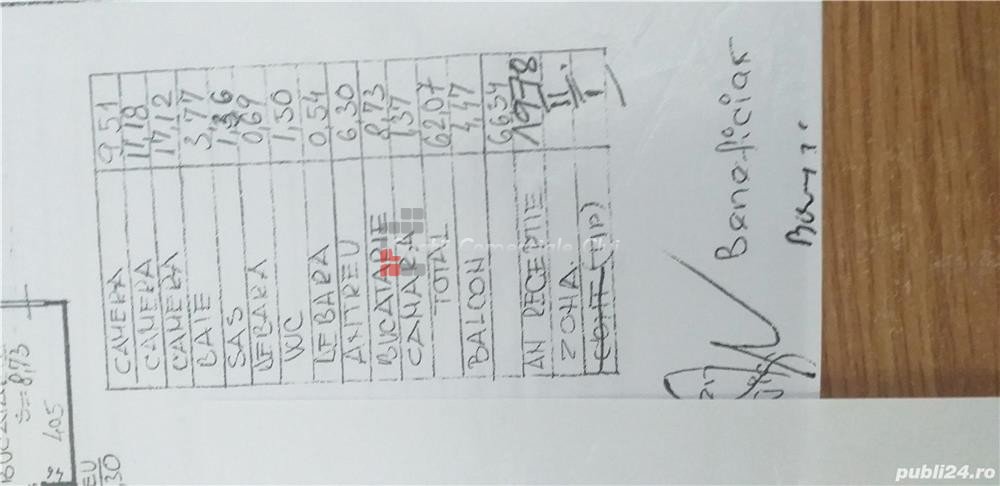 CAMERA 9,51
CAMERA 11,18
CAMERA 17,12
BAIE 3,77
SAS 1,36
DEBARA 0,69
WC 1,30
DEBARA 0,54
ANTREU 6,30
BUCATARIE 8,73
CAMARA 1,37
TOTAL 62,07
BALCON 4,47
6634
AN RECEPTIE 1978
ZONA. II
I
Beneficiar
S=8,73
405
EU
,30
Comerciale Cluj
publi24.ro